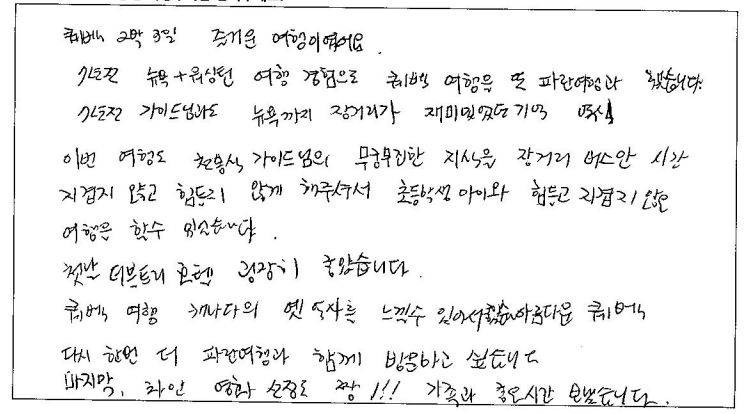 퀘벡 2박 3일 즐거운 여행이였어요.
기존전 뉴욕+워싱턴 여행 경험으로 퀘벡 여행은 또 파란여행과 했습니다.
기존전 가이드님과도 뉴욕까지 장거리가 재미있었던 기억
이번 여행도 가이드님의 무궁무진한 지식을 장거리 버스안 시간
지겹지 않고 힘들지 않게 해주셔서 초등학생 아이와 힘들고 지겹지 않은
여행을 할수 있었습니다.
첫날 더브트리 호텔 굉장히 좋았습니다.
퀘벡 여행 캐나다의 옛 역사를 느낄수 있어서 좋았습니다 아름다운 퀘벡
다시 한번 더 파란여행과 함께 방문하고 싶습니다
마지막, 와인 영화 선정도 짱!!! 가족과 좋은시간 보냈습니다.